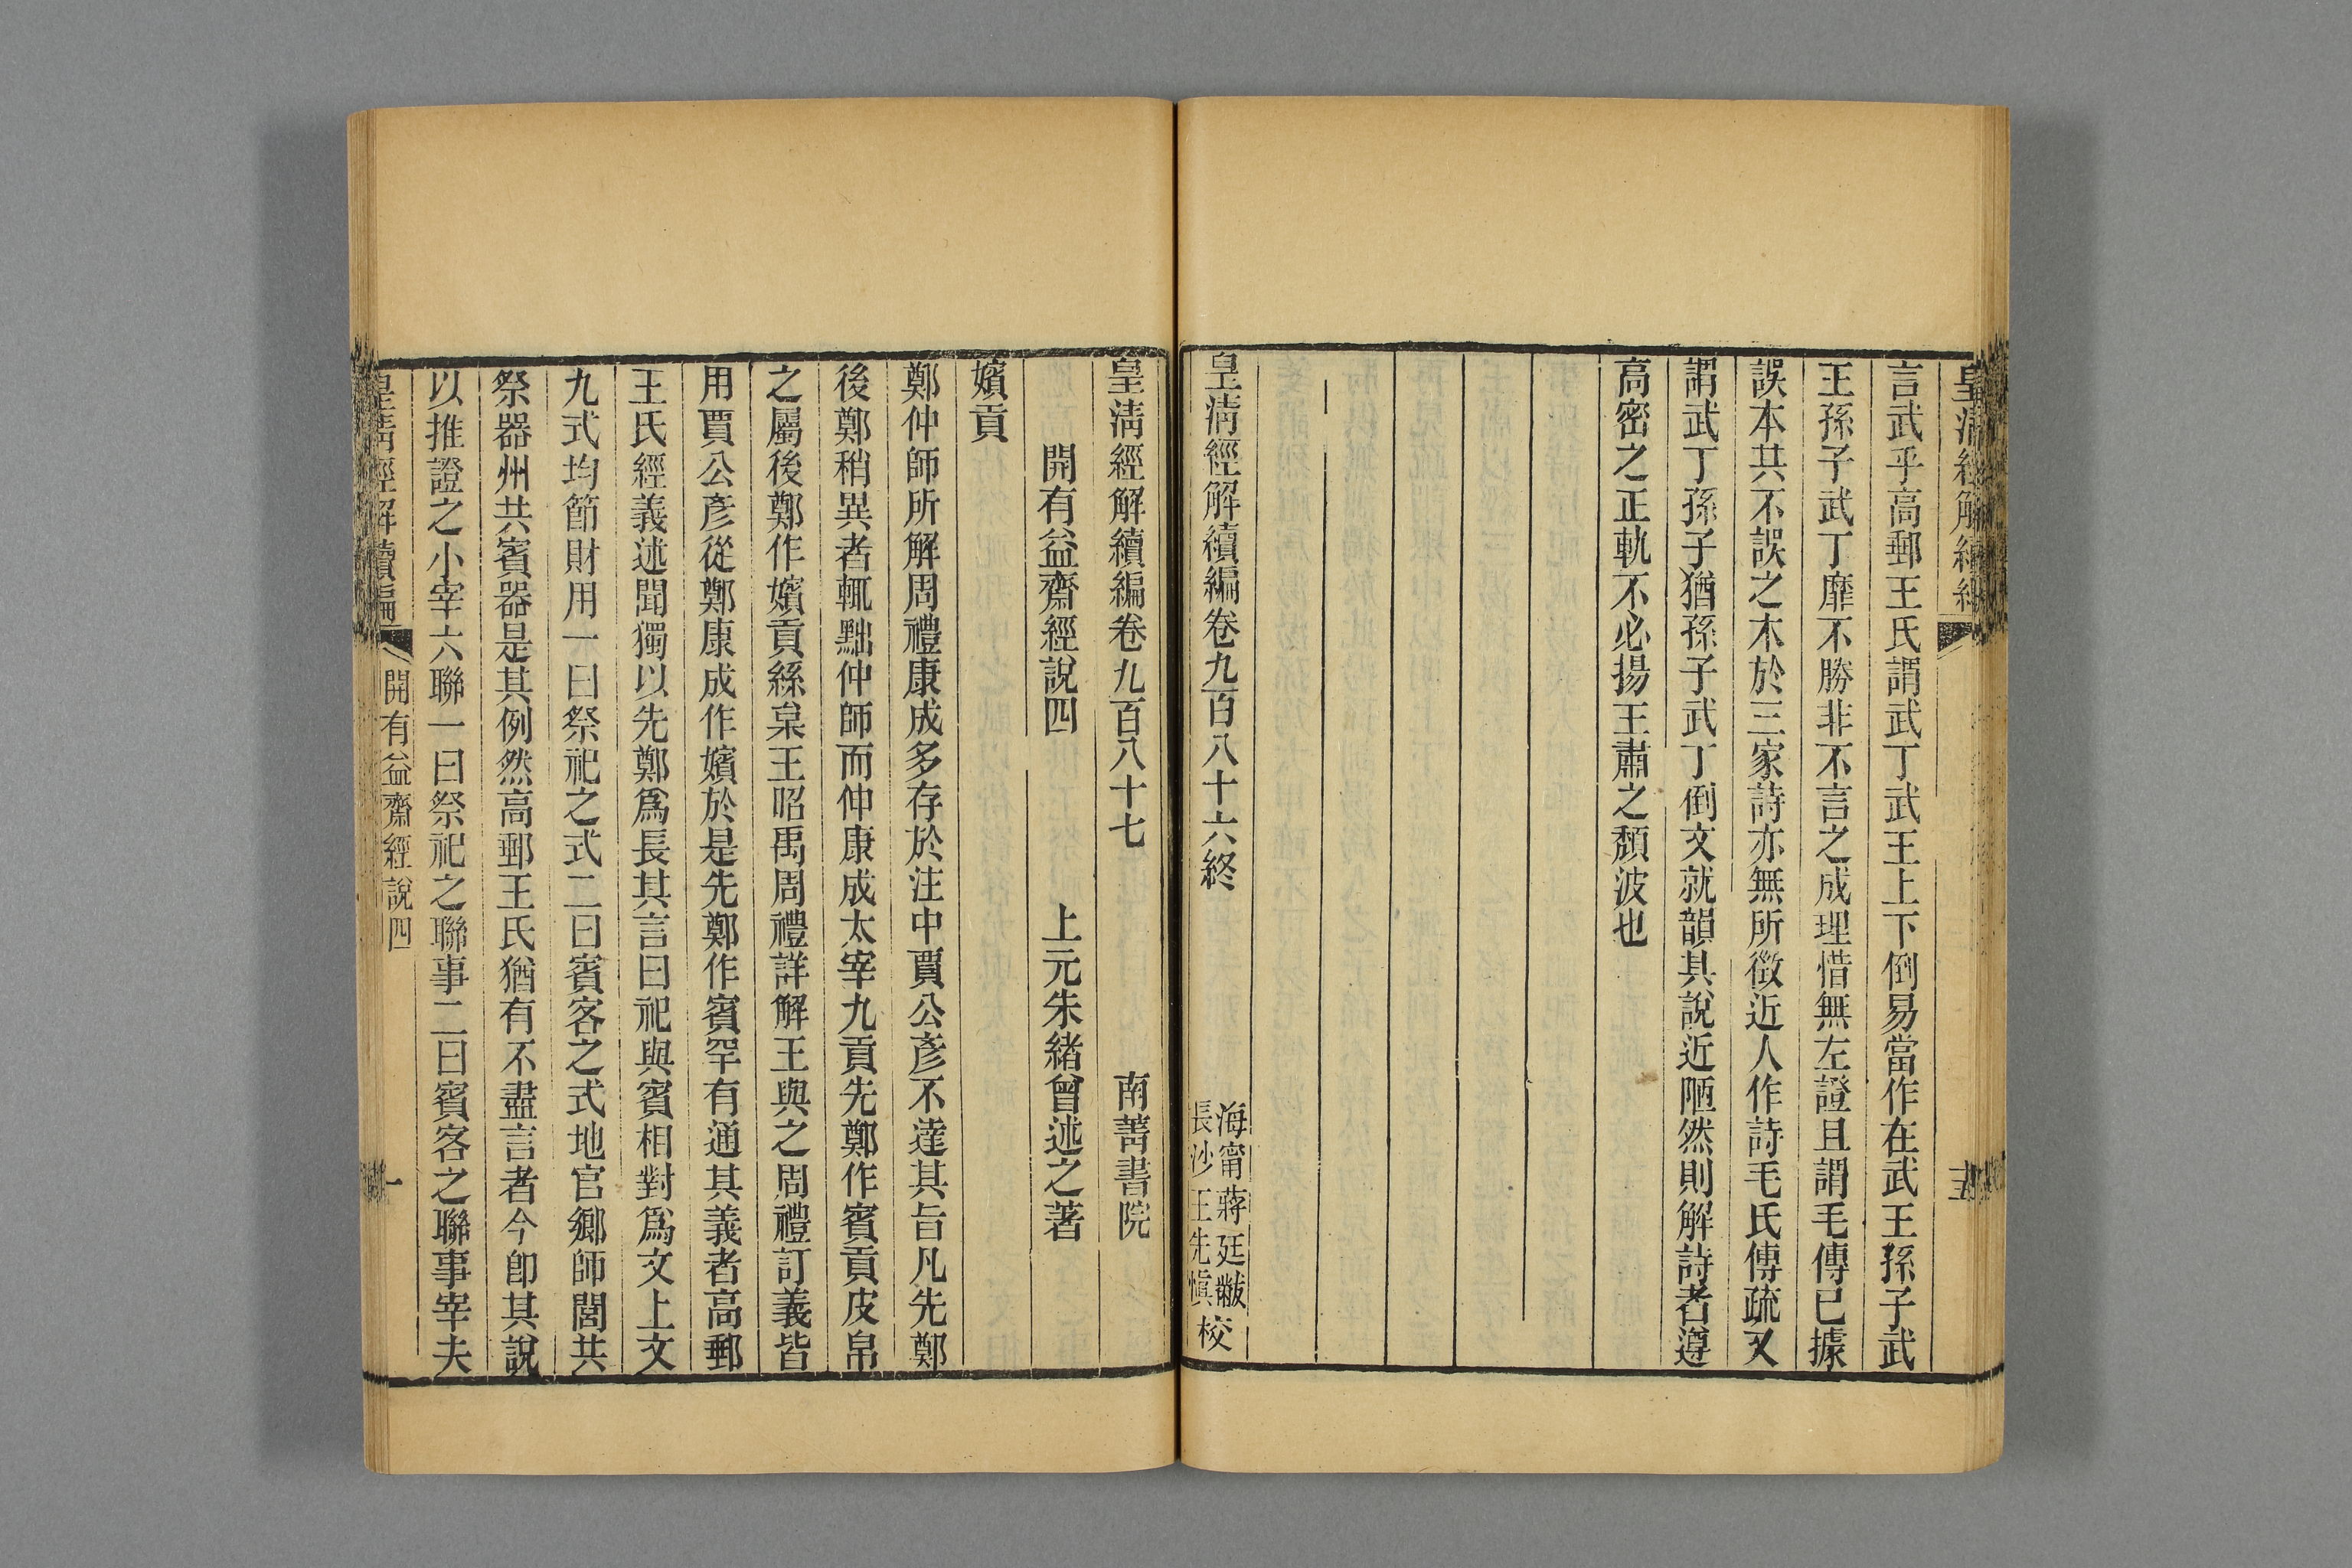 皇淸經解續編
言武乎高郵王氏謂武丁武王上下倒易當作在武王孫子武
王孫子武丁靡不勝非不言之成理惜無左證且謂毛傳已據
誤本共不誤之本於三家詩亦無所徵近人作詩毛氏傳疏又
謂武丁孫子猶孫子武丁倒文就韻其說近陋然則解詩者遵
高密之正軌不必揚王肅之頹波也
皇淸經解續編卷九百八十六終
海甯蔣廷黻
長沙王先愼
校
皇淸經解續編卷九百八十七
南菁書院
開有益齋經說四
上元朱緒曾述之著
嬪貢
鄭仲師所解周禮康成多存於注中賈公彥不達其旨凡先鄭
後鄭稍異者輒黜仲師而伸康成太宰九貢先鄭作賓貢皮帛
之屬後鄭作嬪貢絲枲王昭禹周禮詳解王與之周禮訂義皆
用賈公彥從鄭康成作嬪於是先鄭作賓罕有通其義者高郵
王氏經義述聞獨以先鄭爲長其言曰祀與賓相對爲文上文
九式均節財用一曰祭祀之式二曰賓客之式地官鄉師閭共
祭器州共賓器是其例然高郵王氏猶有不盡言者今卽其說
以推證之小宰六聯一曰祭祀之聯事二曰賓客之聯事宰夫
皇淸經解續編
開有益齋經說四
一